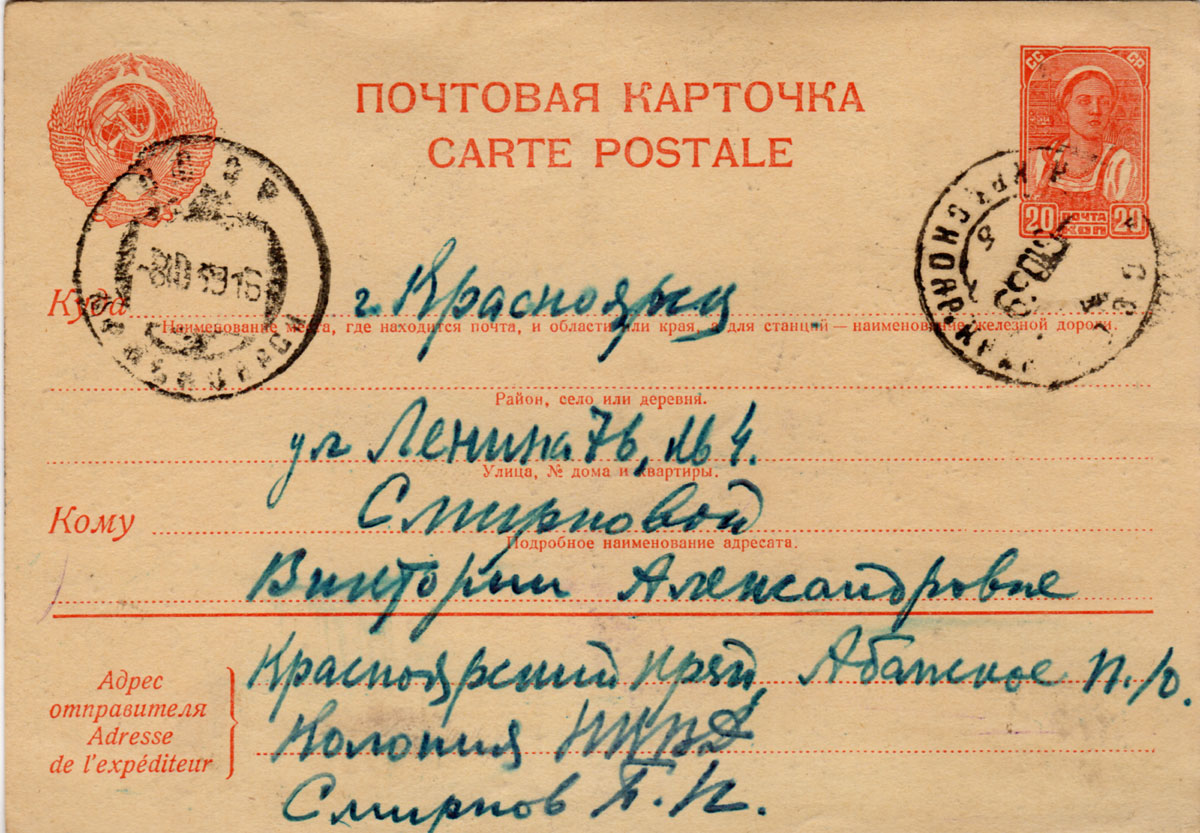 ПОЧТОВАЯ КАРТОЧКА
CARTE POSTALE
СС СР
20 ПОЧТА КОП 20
Куда г. Красноярск
Наименование места, где находится почта, и области или края, а для станций — наименование железной дороги.
Район, село или деревня.
ул Ленина 76, кв 4.
Улица, № дома и квартиры.
Кому Смирновой
Подробное наименование адресата.
Виктории Александровне
Адрес отправителя
Adresse de l'expéditeur
Красноярский край, Абанское п/о.
Колония НКВД
Смирнов Б. П.